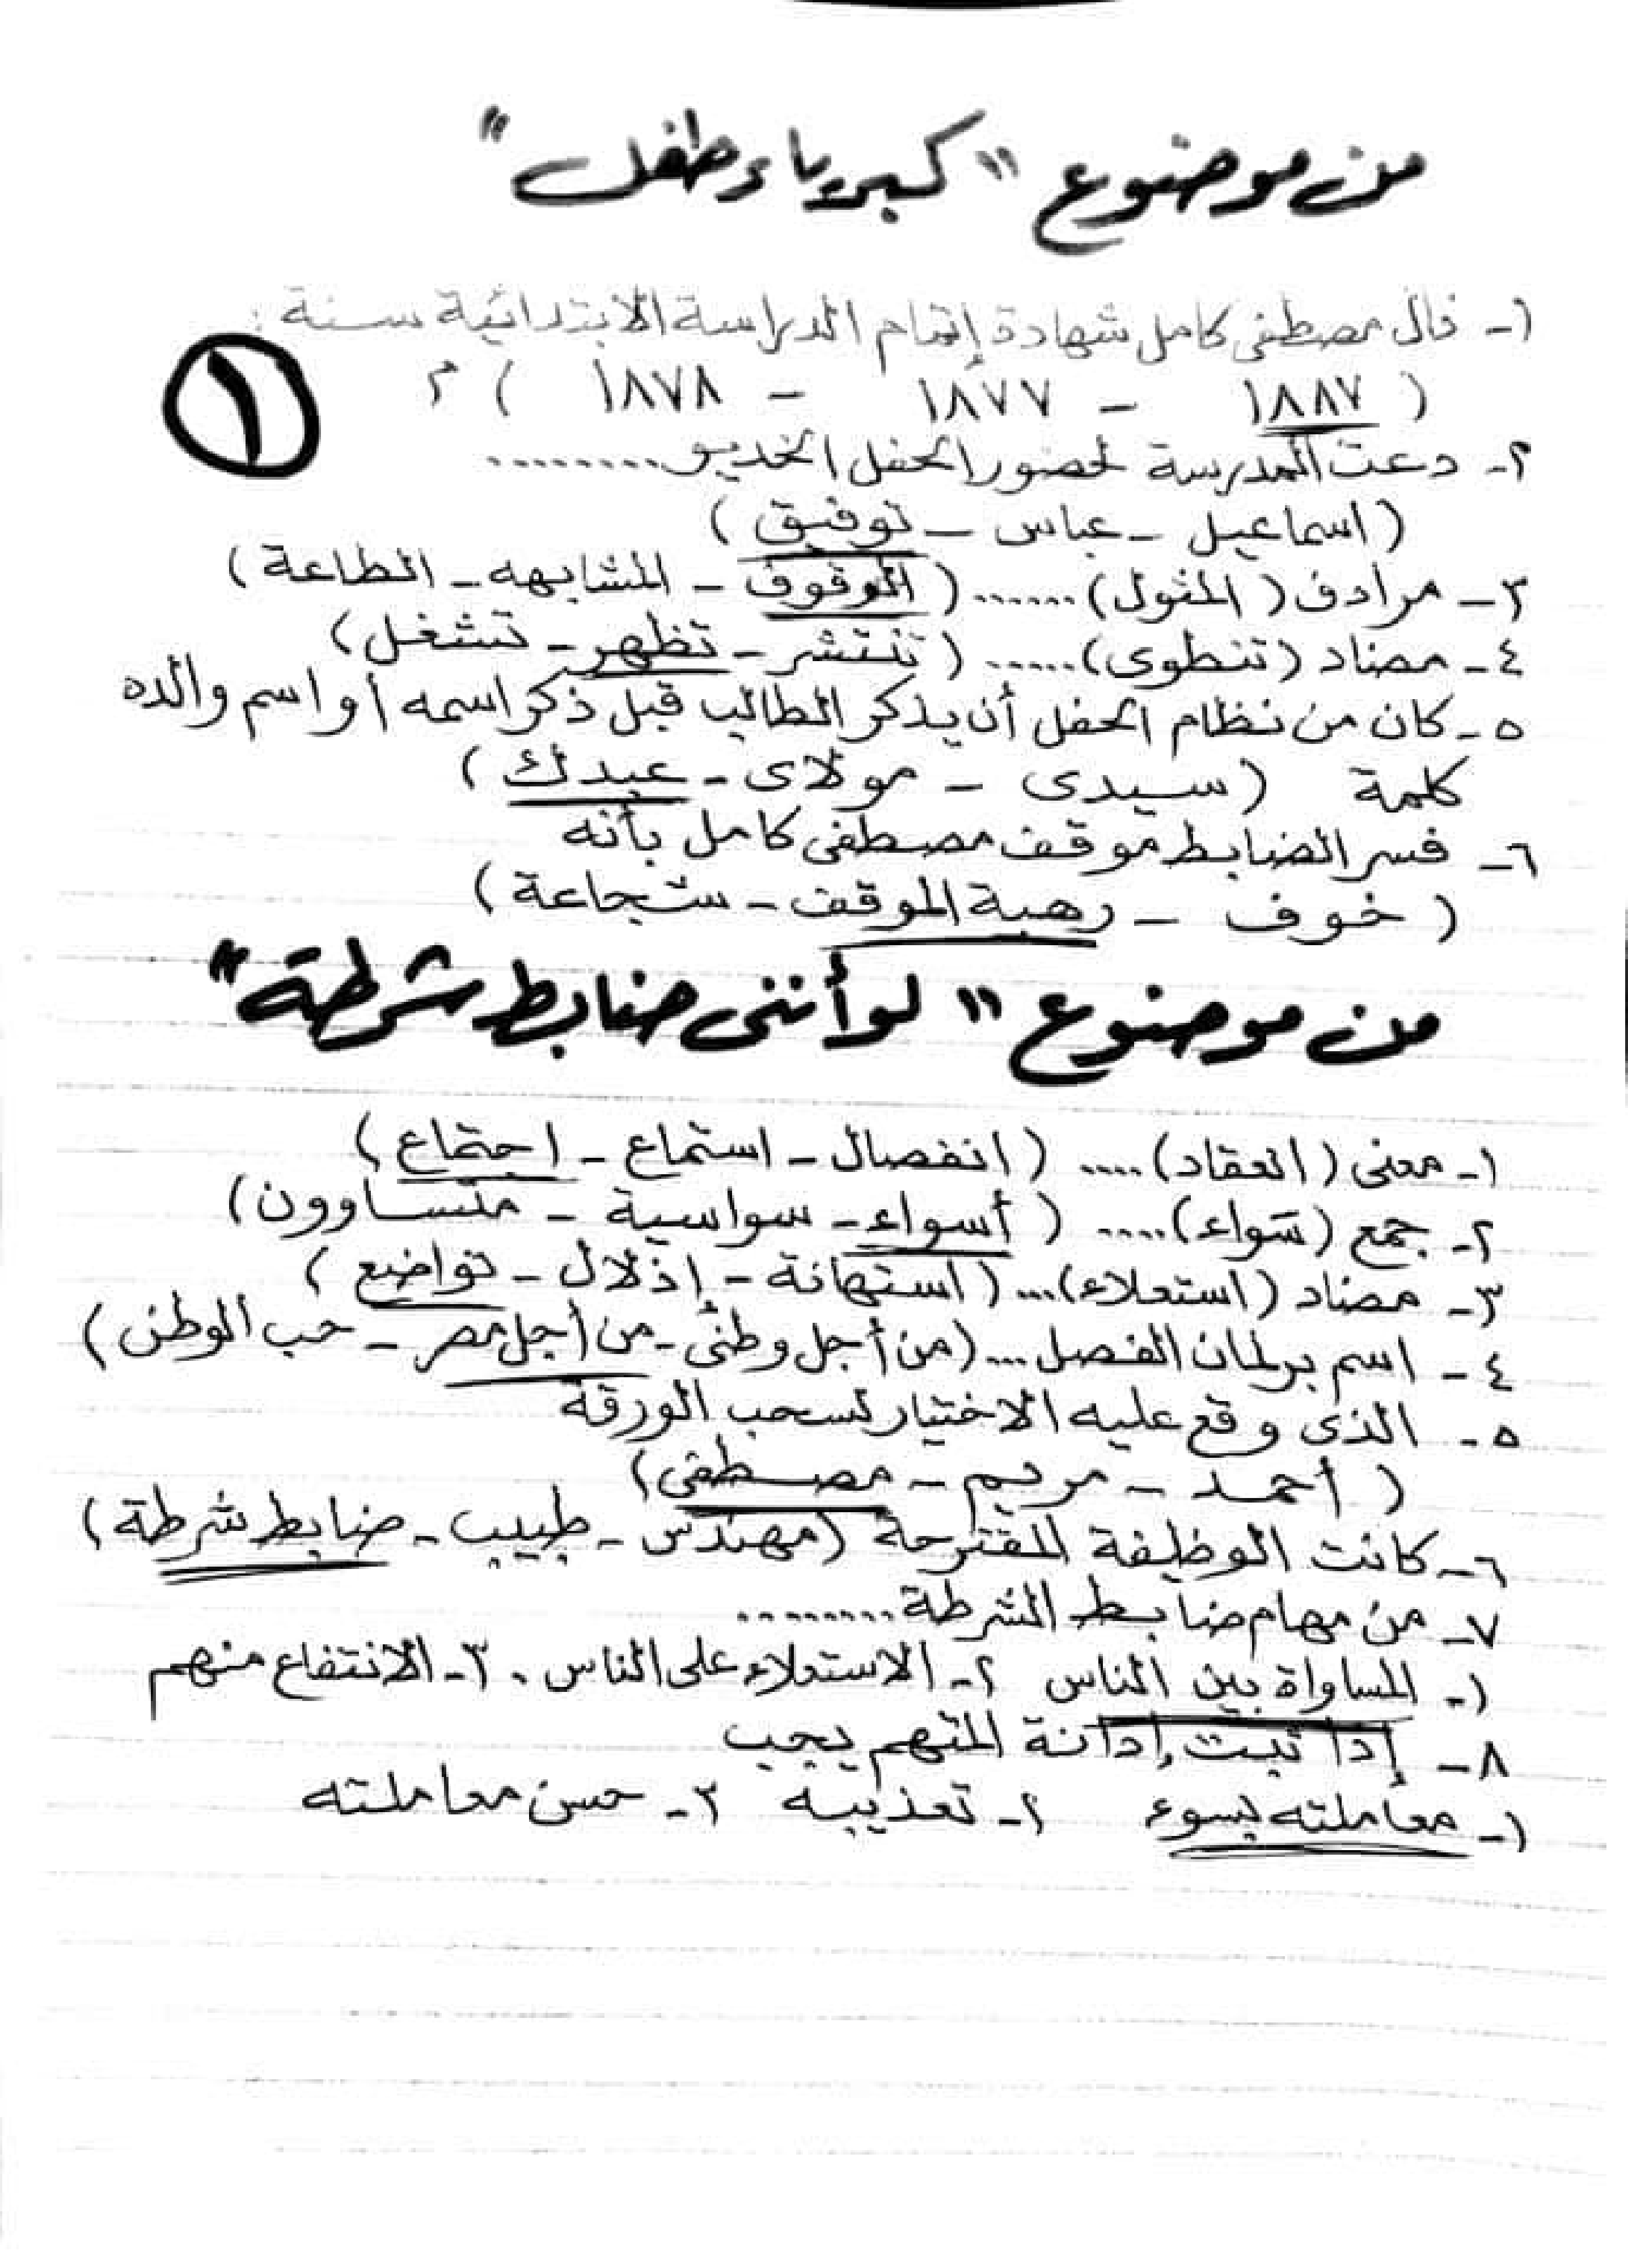 من موضوع " كبرياء طفل "
١- نال مصطفى كامل شهادة إتمام الدراسة الابتدائية سنة :
( ١٨٨٧ - ١٨٧٧ - ١٨٧٨ ) م
١
٢- دعت المدرسة لحضور الحفل الخديو ........
( اسماعيل - عباس - توفيق )
٣- مرادف ( المثول ) ...... ( الوقوف - المشابهه - الطاعة )
٤- مضاد ( تنطوى ) ..... ( تنتشر - تظهر - تنشغل )
٥- كان من نظام الحفل أن يذكر الطالب قبل ذكر اسمه أو اسم والده
كلمة ( سيدى - مولاى - عبدك )
٦- فسر الضابط موقف مصطفى كامل بأنه
( خوف - رهبة الموقف - شجاعة )
من موضوع " لو أننى ضابط شرطة "
١- معنى ( انعقاد ) .... ( انفصال - استماع - اجتماع )
٢- جمع ( سواء ) ..... ( أسواء - سواسية - متساوون )
٣- مضاد ( استعلاء ) ... ( استهانة - إذلال - تواضع )
٤- اسم برلمان الفصل ... ( من أجل وطنى - من أجل مصر - حب الوطن )
٥- الذى وقع عليه الاختيار لسحب الورقة
( أحمد - مريم - مصطفى )
٦- كانت الوظيفة المقترحة ( مهندس - طبيب - ضابط شرطة )
٧- من مهام ضابط الشرطة .........
١- المساواة بين الناس ٢- الاستعلاء على الناس . ٣- الانتفاع منهم
٨- إذا ثبت إدانة المتهم يجب
١- معاملته بسوء ٢- تعذيبه ٣- حسن معاملته